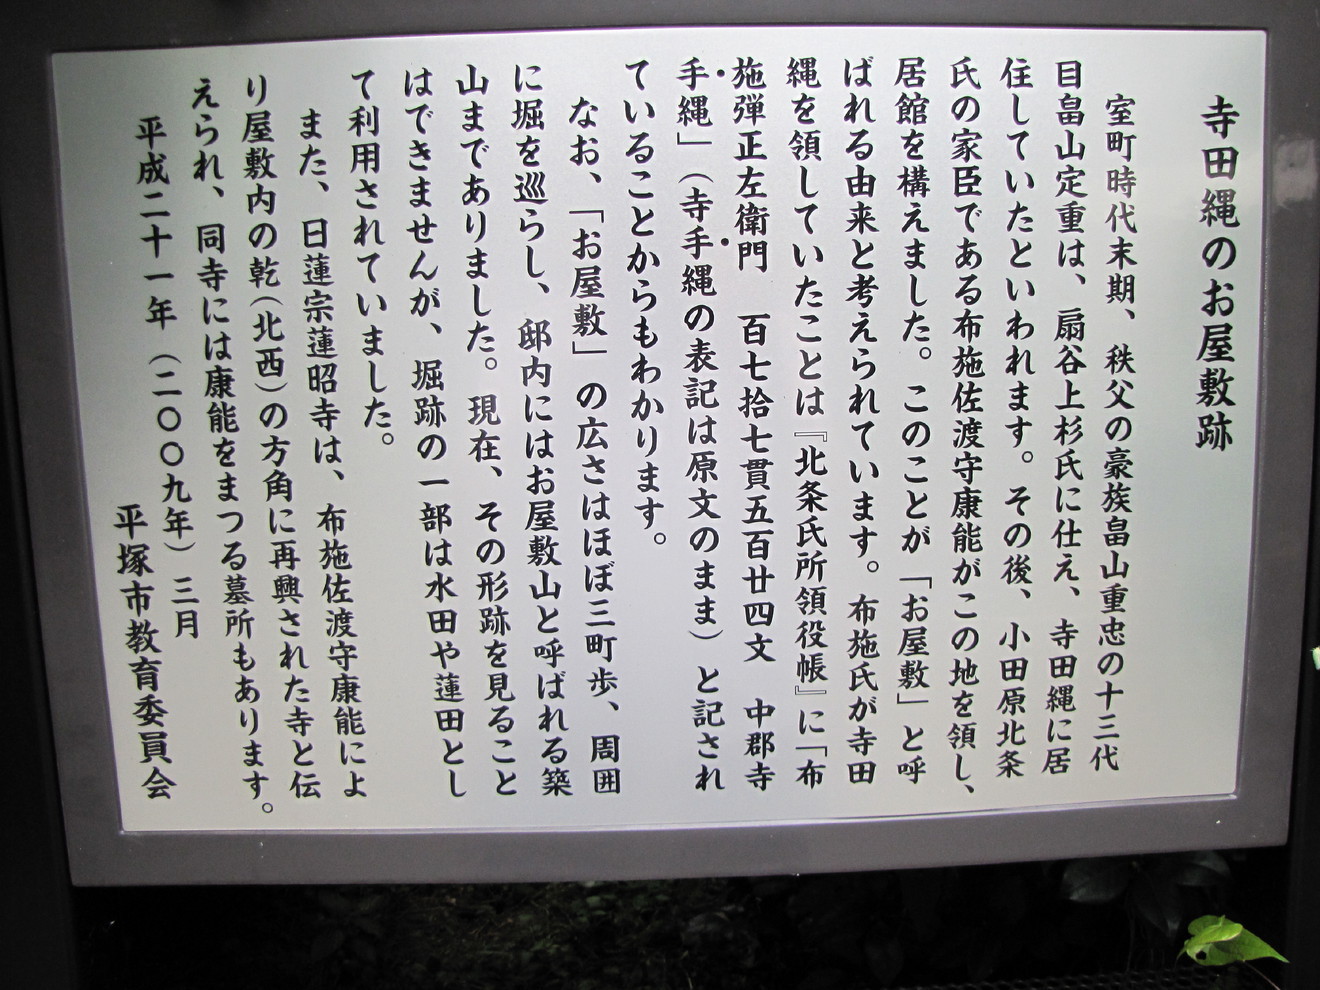 寺田縄のお屋敷跡
室町時代末期、秩父の豪族畠山重忠の十三代
目畠山定重は、扇谷上杉氏に仕え、寺田縄に居
住していたといわれます。その後、小田原北条
氏の家臣である布施佐渡守康能がこの地を領し、
居館を構えました。このことが「お屋敷」と呼
ばれる由来と考えられています。布施氏が寺田
縄を領していたことは『北条氏所領役帳』に「布
施弾正左衛門　百七拾七貫五百廿四文　中郡寺
手縄」（寺手縄の表記は原文のまま）と記され
ていることからもわかります。
なお、「お屋敷」の広さはほぼ三町歩、周囲
に堀を巡らし、邸内にはお屋敷山と呼ばれる築
山までありました。現在、その形跡を見ること
はできませんが、堀跡の一部は水田や蓮田とし
て利用されていました。
また、日蓮宗蓮昭寺は、布施佐渡守康能によ
り屋敷内の乾（北西）の方角に再興された寺と伝
えられ、同寺には康能をまつる墓所もあります。
平成二十一年（二〇〇九年）三月
平塚市教育委員会